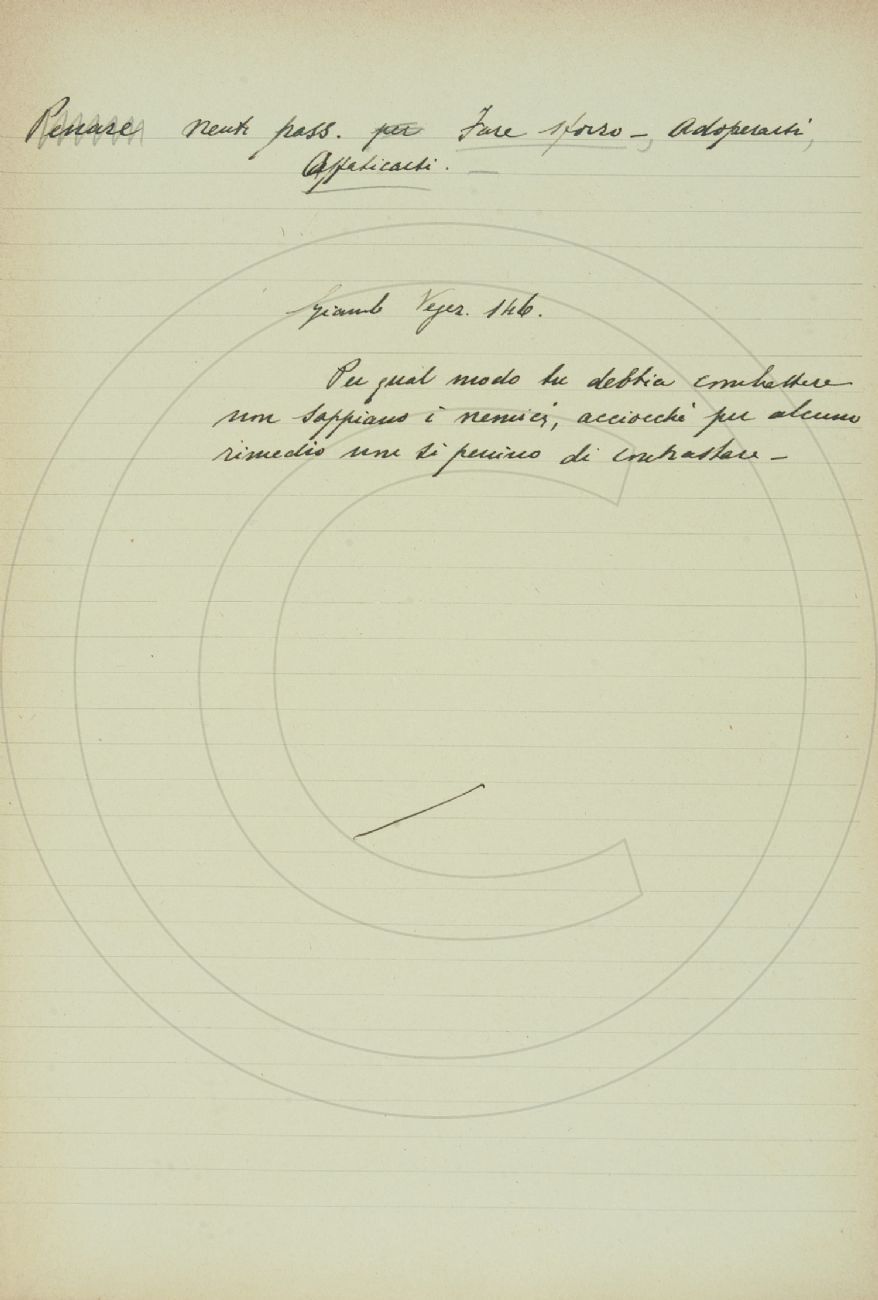 Penare neut. pass. per Fare sforzo –, Adoperarsi,
Affaticarsi. –
Giamb Vegez. 146.
Per qual modo tu debbia combattere
non sappiano i nemici, acciocchè per alcuno
rimedio non si penino di contrastare –